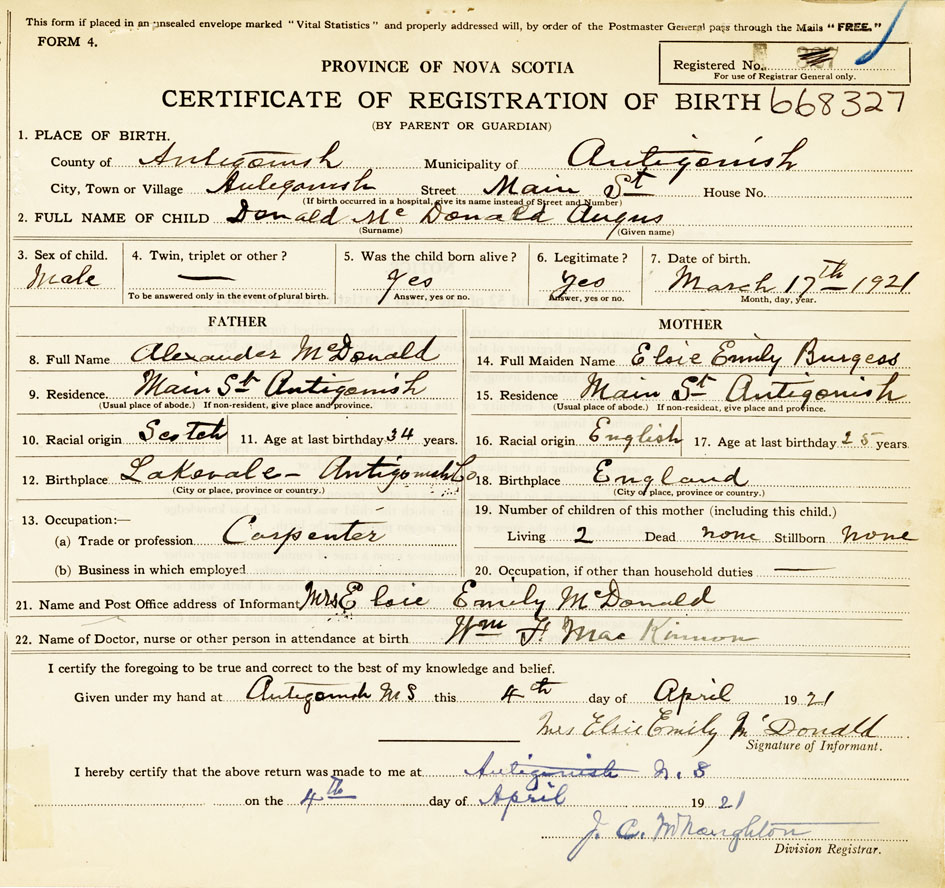 This form if placed in an unsealed envelope marked "Vital Statistics" and properly addressed will, by order of the Postmaster General pass through the Mails "FREE."
FORM 4.
PROVINCE OF NOVA SCOTIA
Registered No.
For use of Registrar General only.
CERTIFICATE OF REGISTRATION OF BIRTH 668327
(BY PARENT OR GUARDIAN)
1. PLACE OF BIRTH.
County of Antigonish Municipality of Antigonish
City, Town or Village Antigonish Street Main St House No.
(If birth occurred in a hospital, give its name instead of Street and Number)
2. FULL NAME OF CHILD Donald Mc Donald Angus
(Surname) (Given name)
3. Sex of child. 4. Twin, triplet or other? 5. Was the child born alive? 6. Legitimate? 7. Date of birth.
Male — Yes Yes March 17th 1921
To be answered only in the event of plural birth. Answer, yes or no. Answer, yes or no. Month, day, year.
FATHER MOTHER
8. Full Name Alexander McDonald 14. Full Maiden Name Elsie Emily Burgess
9. Residence. Main St Antigonish 15. Residence Main St Antigonish
(Usual place of abode.) If non-resident, give place and province. (Usual place of abode.) If non-resident, give place and province.
10. Racial origin Scotch 11. Age at last birthday 34 years. 16. Racial origin English 17. Age at last birthday 25 years.
12. Birthplace Lakevale - Antigonish Co 18. Birthplace England
(City or place, province or country.) (City or place, province or country.)
13. Occupation:— 19. Number of children of this mother (including this child.)
(a) Trade or profession Carpenter Living 2 Dead none Stillborn none
(b) Business in which employed 20. Occupation, if other than household duties —
21. Name and Post Office address of Informant Mrs Elsie Emily McDonald
22. Name of Doctor, nurse or other person in attendance at birth Wm F Mac Kinnon
I certify the foregoing to be true and correct to the best of my knowledge and belief.
Given under my hand at Antigonish N S this 4th day of April 1921
Mrs Elsie Emily McDonald
Signature of Informant.
I hereby certify that the above return was made to me at Antigonish N. S
on the 4th day of April 1921
J. C. McNaughton
Division Registrar.